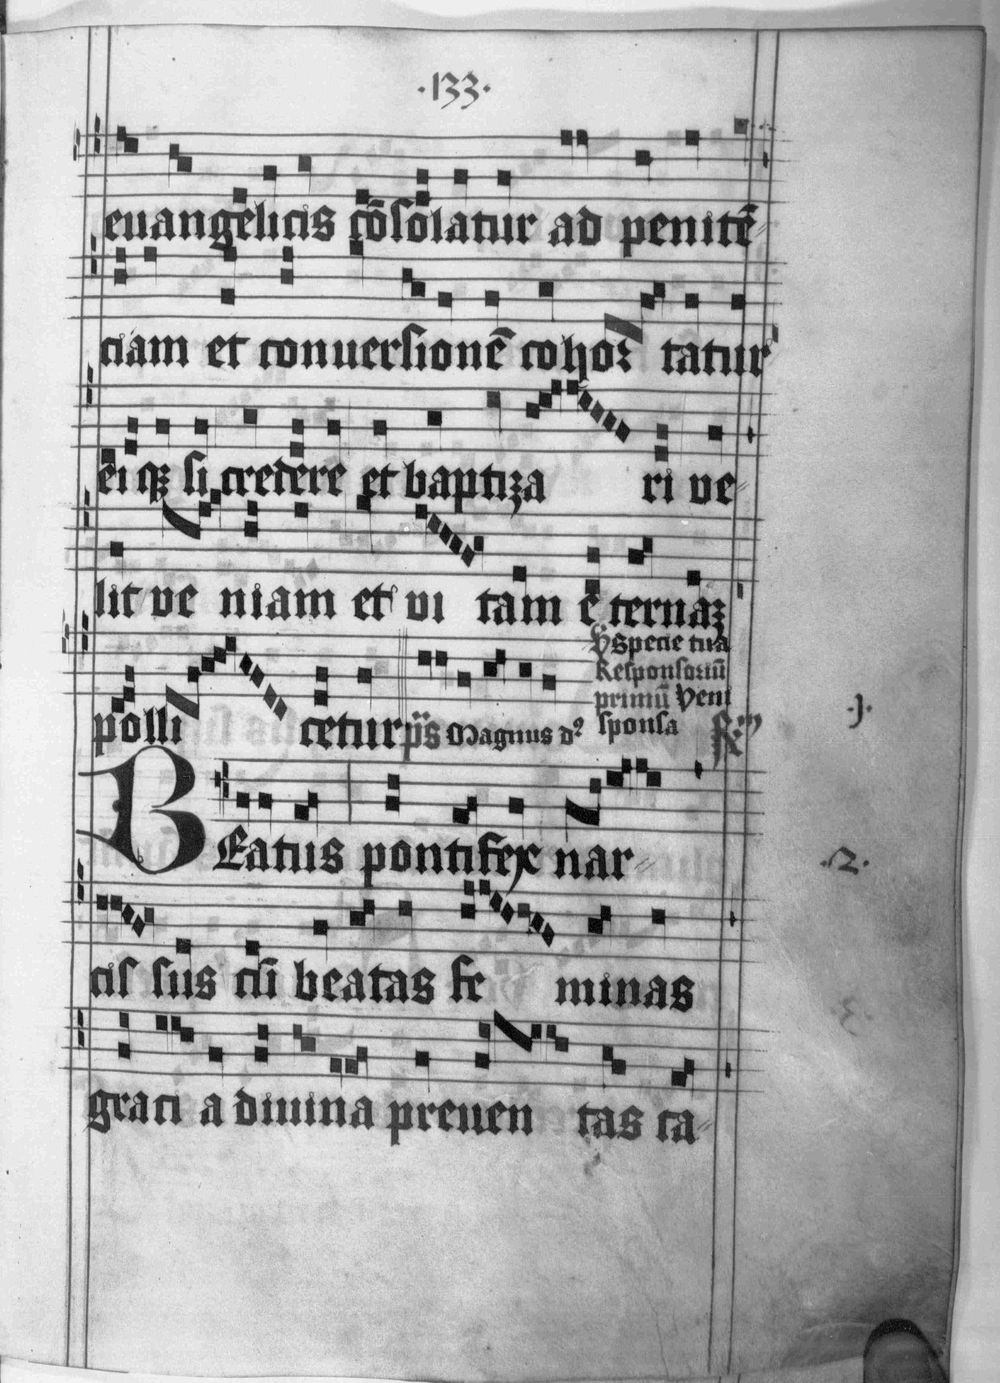 ·133·
euangelicis cōsolatur ad penitē⸗
ciam et conuersionē cohor tatur
ei qꝫ si credere et baptiza ri ve⸗
lit ve niam et vi tam e ternaꝫ
℣ Specie tua
Responsoriū
primū Veni
sponsa
polli cetur p̄s Magnus dꝰ
·1·
BEatus pontifex nar⸗
·2·
cis sus cū beatas fe minas
·3·
graci a diuina preuen tas ca⸗